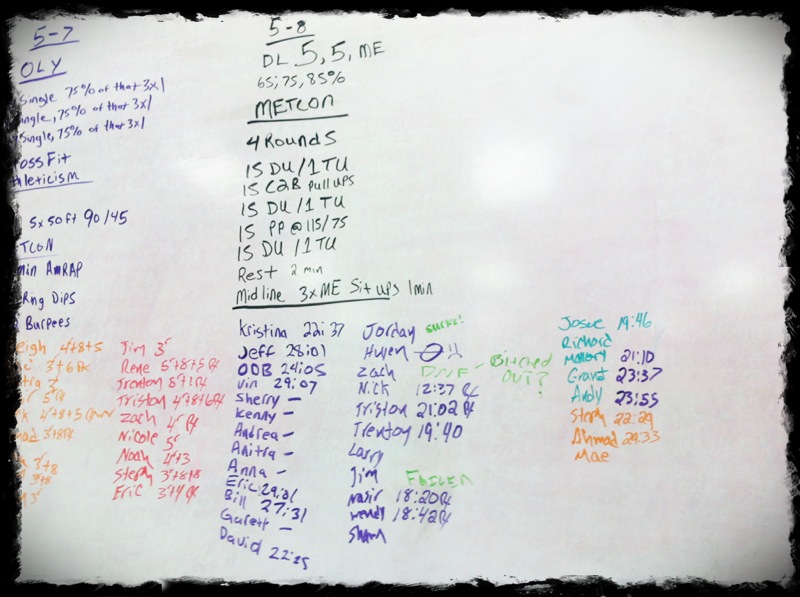 5-7
OLY
Single 75% of that 3x1
ingle, 75% of that 3x1
Single, 75% of that 3x1
ossFit
hleticism
5x50ft 90/45
TCON
min AMRAP
Ring Dips
Burpees
eigh 4+8+5
3+6 Rx
5 Rx
k 4+8+5
mad 3+8 Rx
3+8
3+8
3
Jim 3
Rene 5+8+5 Rx
Trenton 5+1 Rx
Triston 4+8+6 Rx
Zach 4 Rx
Nicole 5
Noah 4+3
Steph 3+8+8
Eric 3+4 Rx
5-8
DL 5, 5, ME
65, 75, 85%
METCON
4 Rounds
15 DU/1 TU
15 C2B Pull ups
15 DU/1 TU
15 PP @ 115/75
15 DU/1 TU
Rest 2 min
Midline 3xME Sit ups 1min
Kristina 22:37
Jeff 28:01
ODB 24:05
Vin 29:07
Sherry -
Kenny -
Andrea -
Anitra -
Anna -
Eric 29:01
Bill 27:31
Garett -
David 22:25
Jorday sucks!
Zach DNF - Bitched OUT?
Nick 12:37 Rx
Triston 21:02 Rx
Trenton 19:40
Larry
Jim FAILED
Nasir 18:20 Rx
Wendy 18:42 Rx
Shawn
Josue 19:46
Richard
Mallory 21:10
Grant 23:37
Andy 23:55
Steph 22:29
Ahmad 29:33
Mae